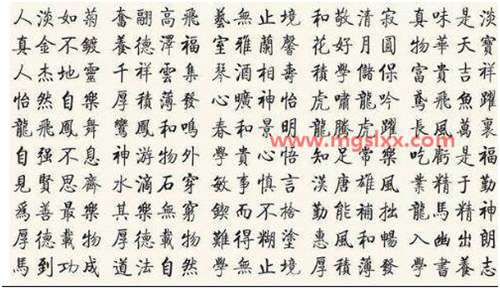 人淡如菊 奮翮高飛 藝無止境 和敬清寂 真味是淡
真金不鍍 養德澤福 室雅蘭馨 花好月圓 物華天寶
人杰地靈 千祥雲集 琴酒相壽 積學儲保 富貴吉祥
怡然自樂 厚積薄發 心曠神怡 虎嘯龍吟 鳶飛魚躍
龍飛鳳舞 鸞鳳和鳴 春和景明 龍騰虎躍 長風萬裏
www.mgslxx.com
自強不息 神游物外 學貴心悟 知足常樂 吃虧是福
見賢思齊 水滴石穿 敏事慎言 漢唐雄風 業精于勤
爲善最樂 其樂無窮 鍥而不捨 勤能補拙 龍馬精神
厚德載物 厚德載物 難得糊塗 惠風和暢 入幽出朗
馬到功成 道法自然 學無止境 厚積薄發 學書養志